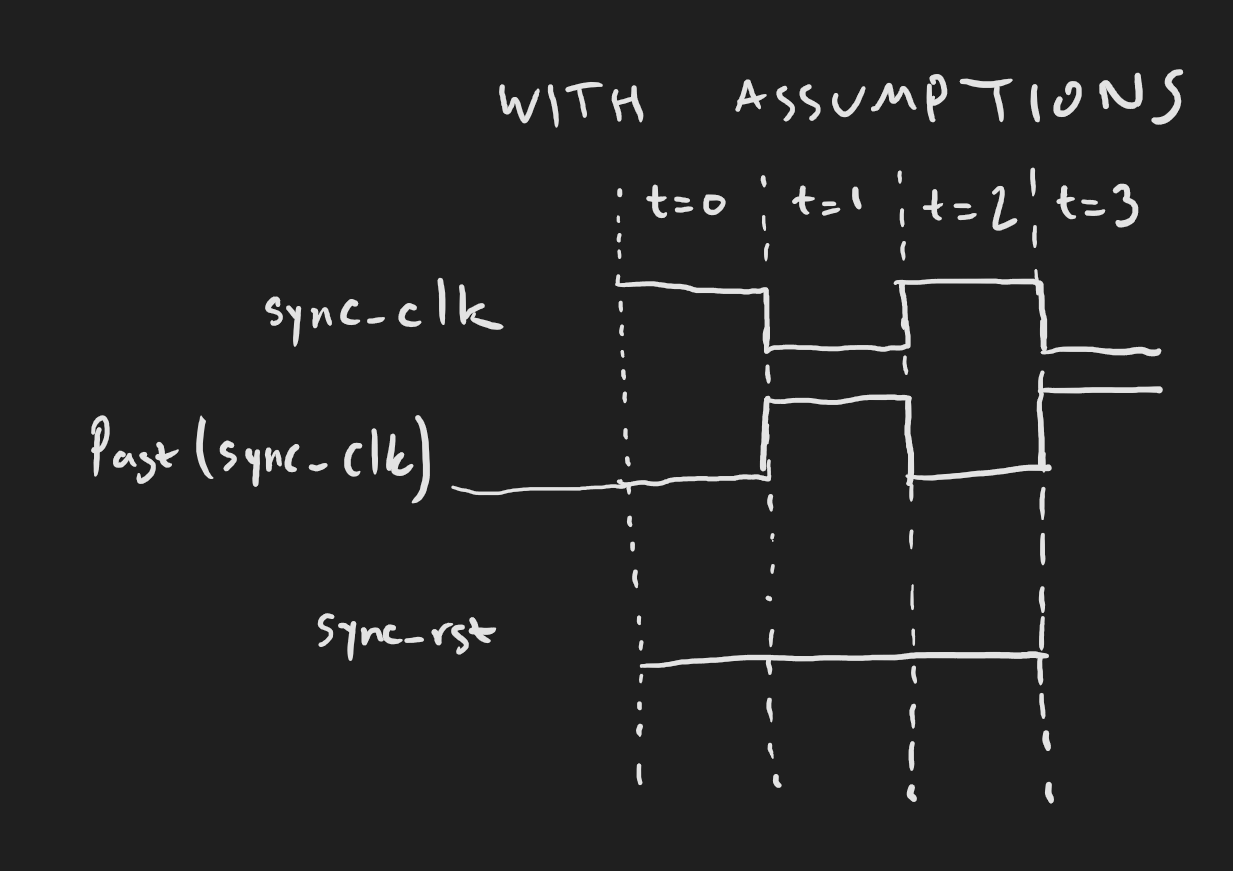 WITH ASSUMPTIONS
t=0 t=1 t=2 t=3
sync_clk
Past(sync_clk)
sync_rst